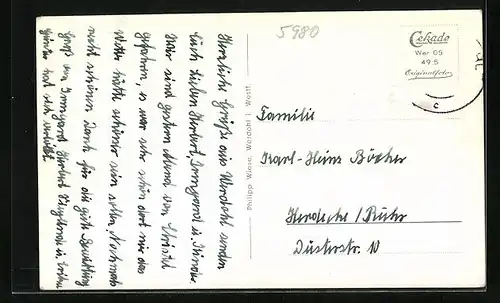 5980
Herzliche Grüße aus Werdohl senden
Euch lieben Herbert, Irmgard u. Kinder
Wir sind gestern Abend von
gefahren, es war sehr schön dort nur das
Wetter hätte schöner sein sollen. Nochmals
recht schönen Dank für die gute Bewirtung
Gruß von Irmgard Herbert
Günter hat sich verlobt.
Philipp Wiese, Werdohl i. Westf.
Cekade
Wer 05
49 5
Originalfoto
c
Familie
Karl-Heinz Böcher
Herdecke/Ruhr
10